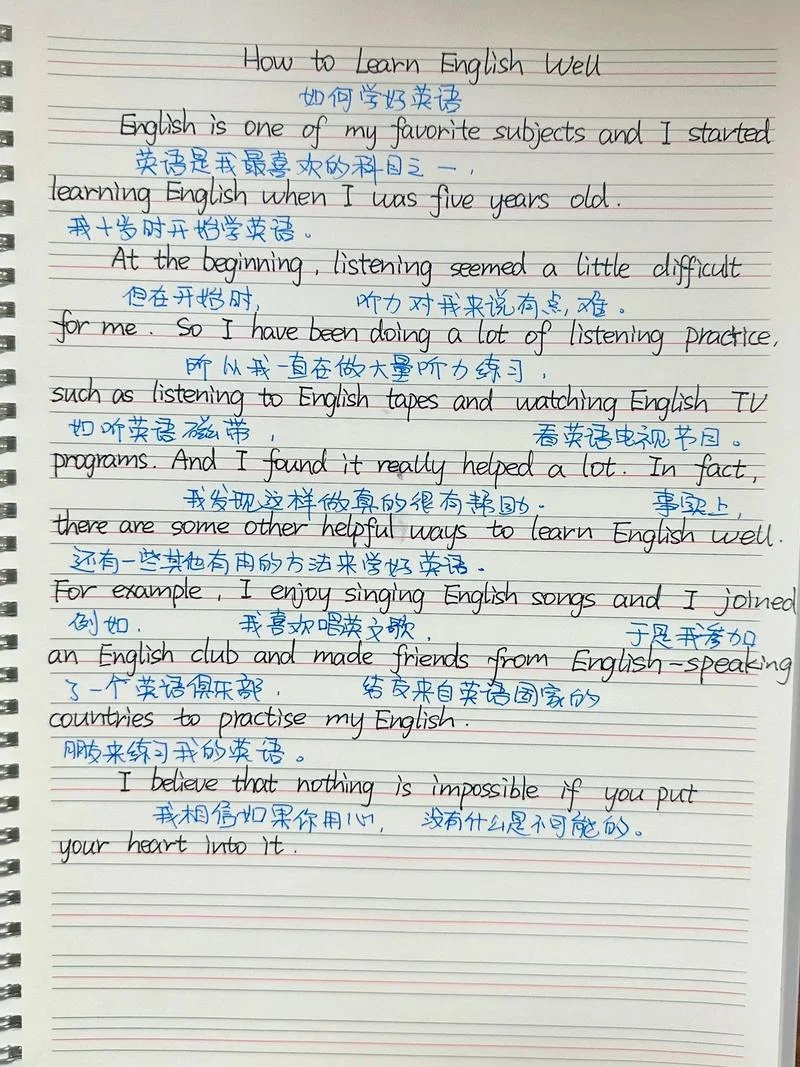 How to Learn English Well
如何学好英语
English is one of my favorite subjects and I started
英语是我最喜欢的科目之一,
learning English when I was five years old.
我十岁时开始学英语。
At the beginning, listening seemed a little difficult
但在开始时, 听力对我来说有点难。
for me. So I have been doing a lot of listening practice,
所以我一直在做大量听力练习,
such as listening to English tapes and watching English TV
如听英语磁带, 看英语电视节目。
programs. And I found it really helped a lot. In fact,
我发现这样做真的很有帮助. 事实上,
there are some other helpful ways to learn English well.
还有一些其他有用的方法来学好英语.
For example, I enjoy singing English songs and I joined
例如. 我喜欢唱英文歌, 于是我参加
an English club and made friends from English-speaking
了一个英语俱乐部, 结友来自英语国家的
countries to practise my English.
朋友来练习我的英语。
I believe that nothing is impossible if you put
我相信如果你用心, 没有什么是不可能的。
your heart into it.